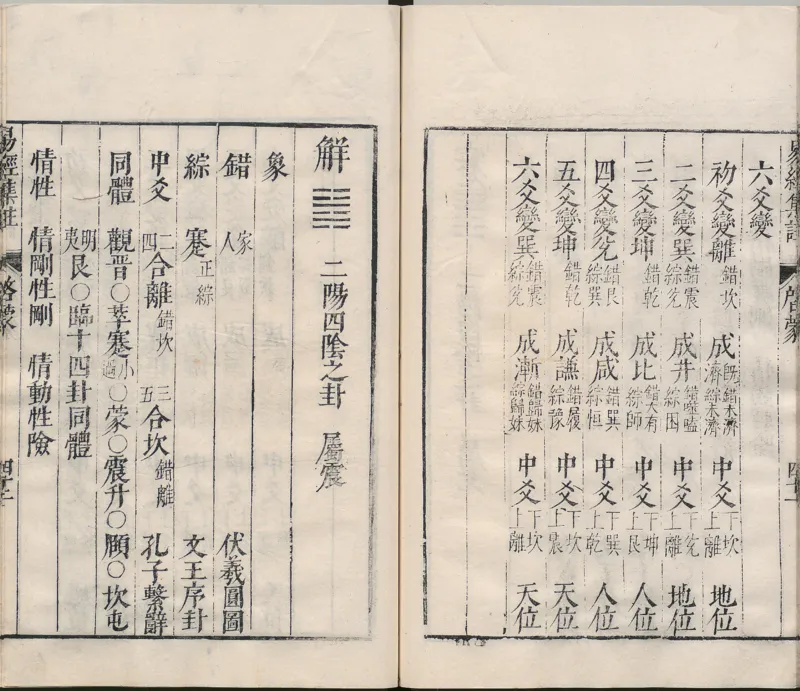 六爻變
初爻變離 錯坎 成既濟 錯未濟 綜未濟 中爻 下坎 上離 地位
二爻變巽 錯震 綜兌 成井 錯噬嗑 綜困 中爻 下兌 上離 地位
三爻變坤 錯乾 成比 錯大有 綜師 中爻 下坤 上艮 人位
四爻變兌 錯艮 綜巽 成咸 錯巽 綜恒 中爻 下巽 上乾 人位
五爻變坤 錯乾 成謙 錯履 綜豫 中爻 下坎 上震 天位
六爻變巽 錯震 綜兌 成漸 錯歸妹 綜歸妹 中爻 下坎 上離 天位
解 ䷧ 二陽四陰之卦 屬震
象
錯 家人 伏羲圓圖
綜 蹇 正綜 文王序卦
中爻 二四合離 錯坎 三五合坎 錯離 孔子繫辭
同體 觀晉○萃蹇小過○蒙○震升○頤○坎屯
明夷艮○臨十四卦同體
情性 情剛性剛 情動性險
易經集註
啓蒙